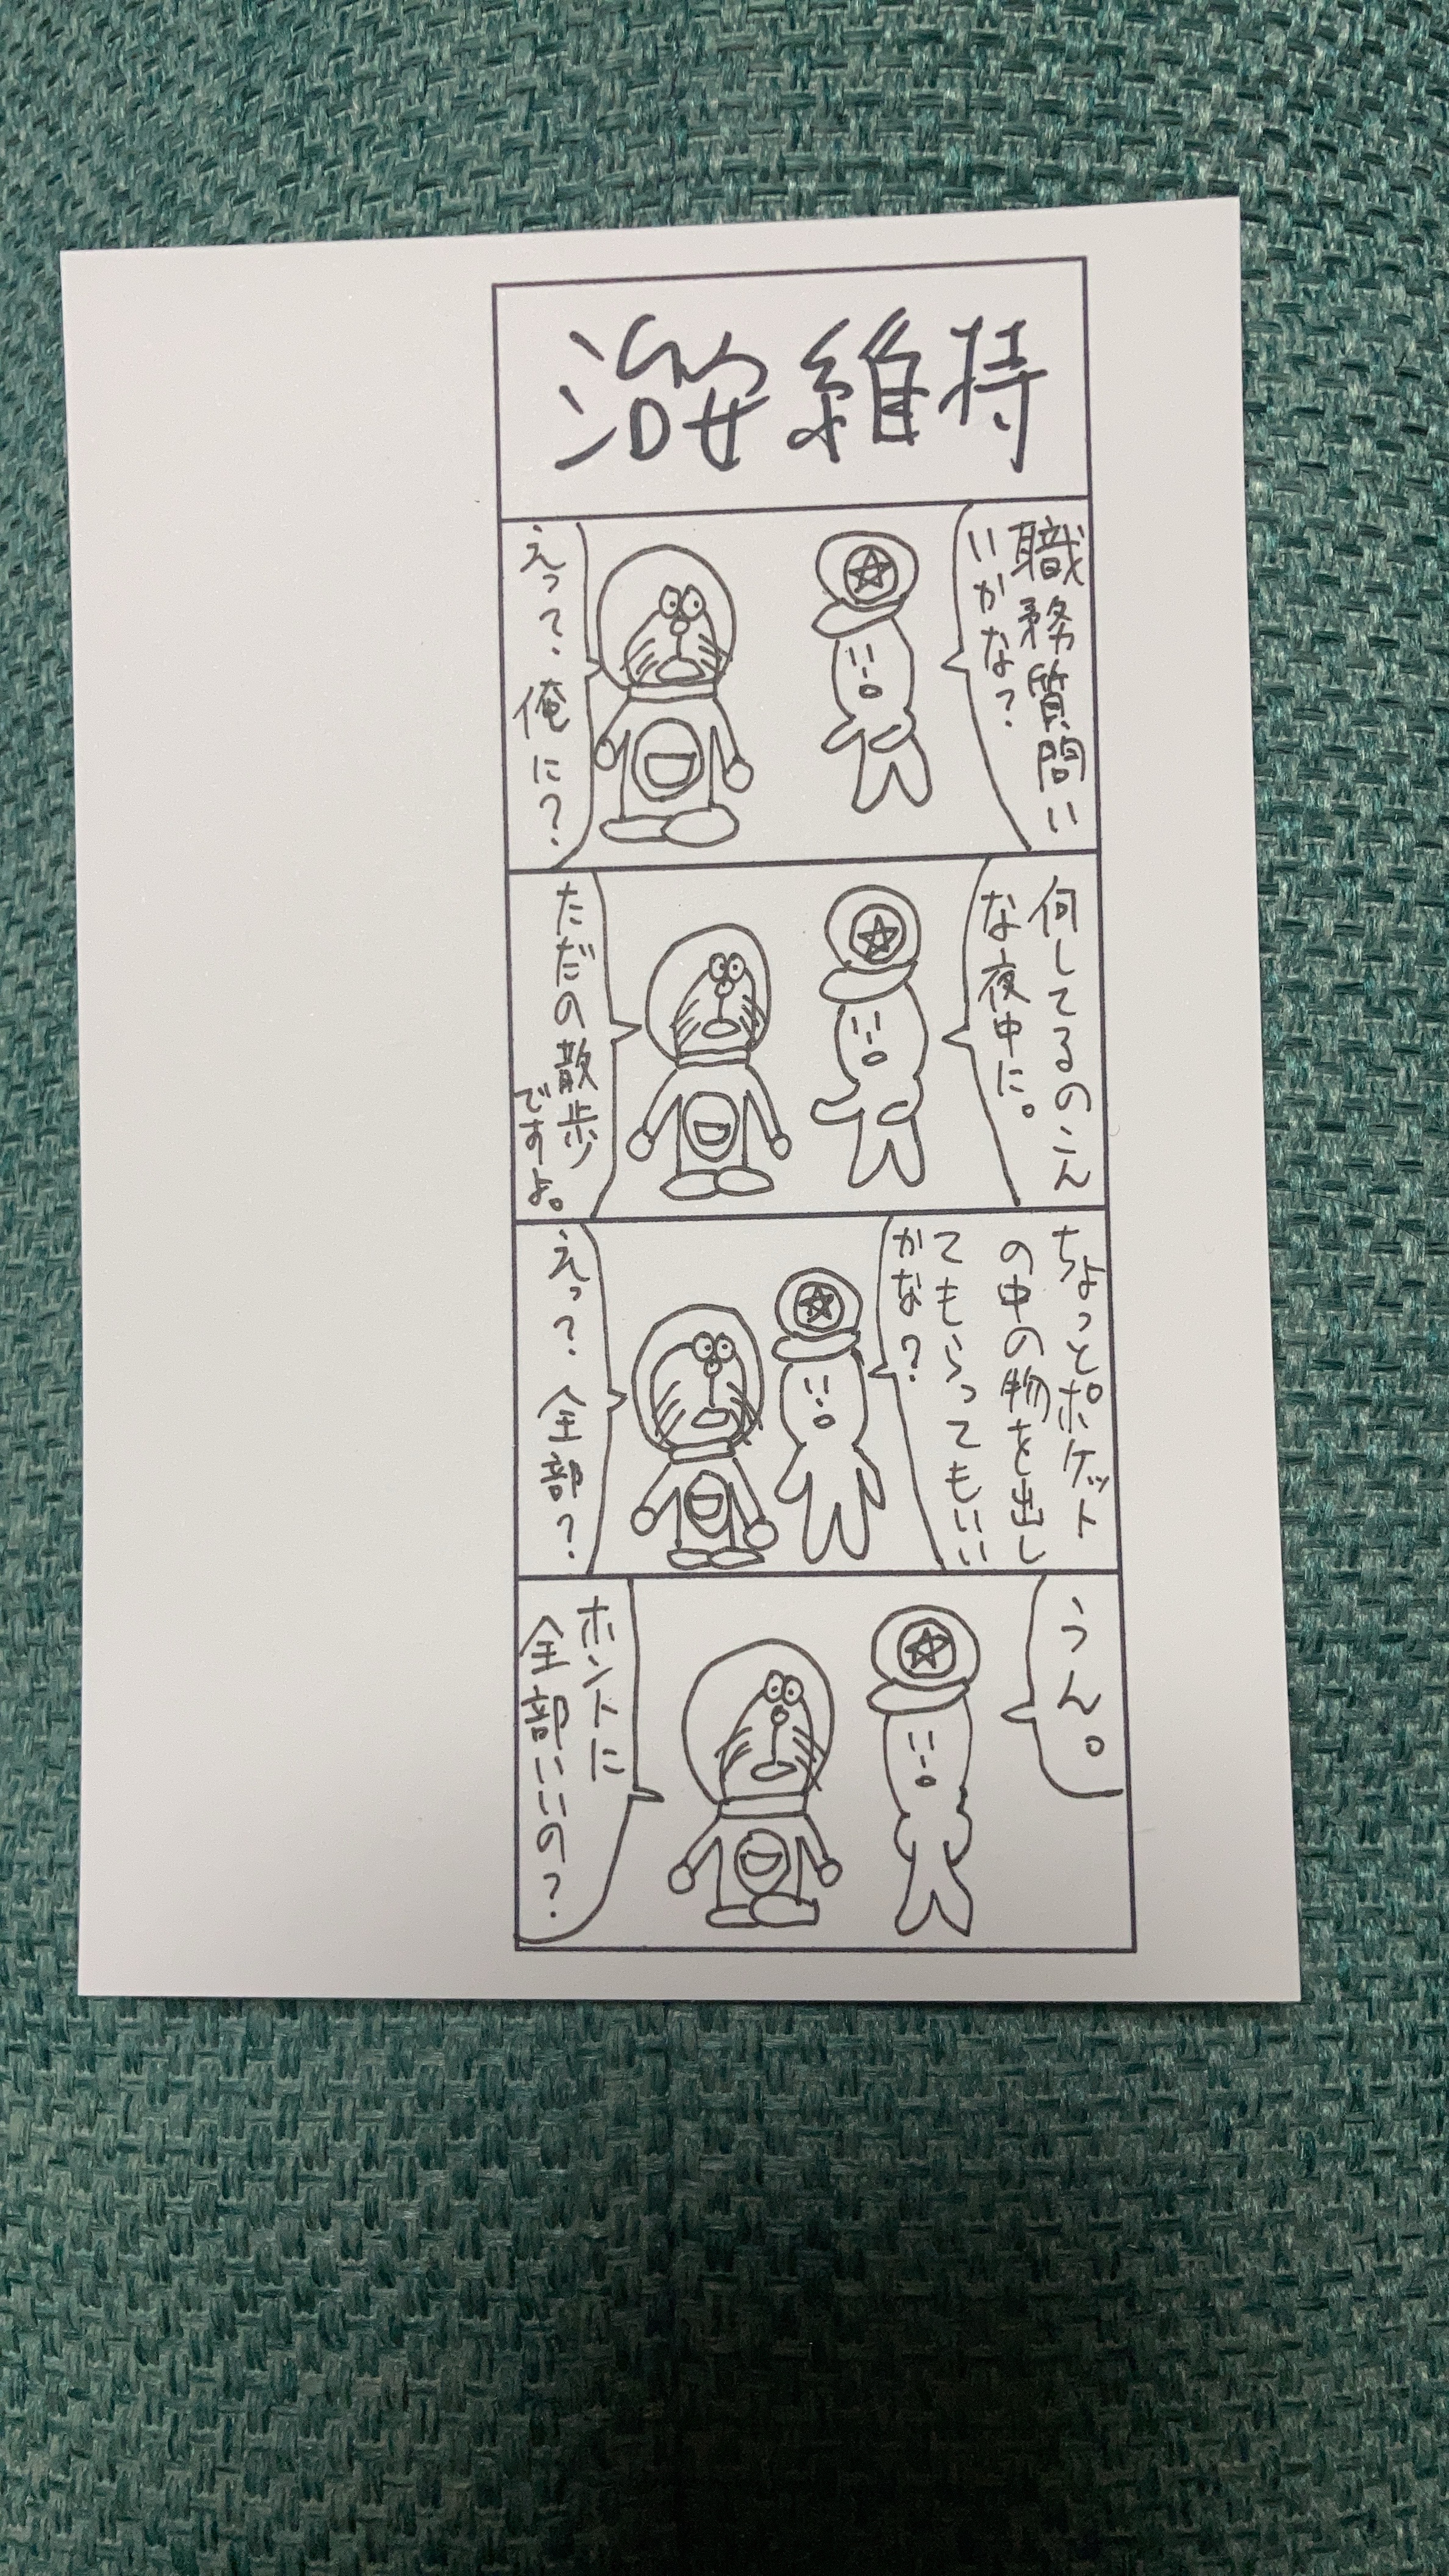 治安維持
職務質問い
いかな?
えっ?俺に?
何してるのこん
な夜中に。
ただの散歩
ですよ。
ちょっとポケット
の中の物を出し
てもらってもいい
かな?
えっ?全部?
うん。
ホントに
全部いいの?